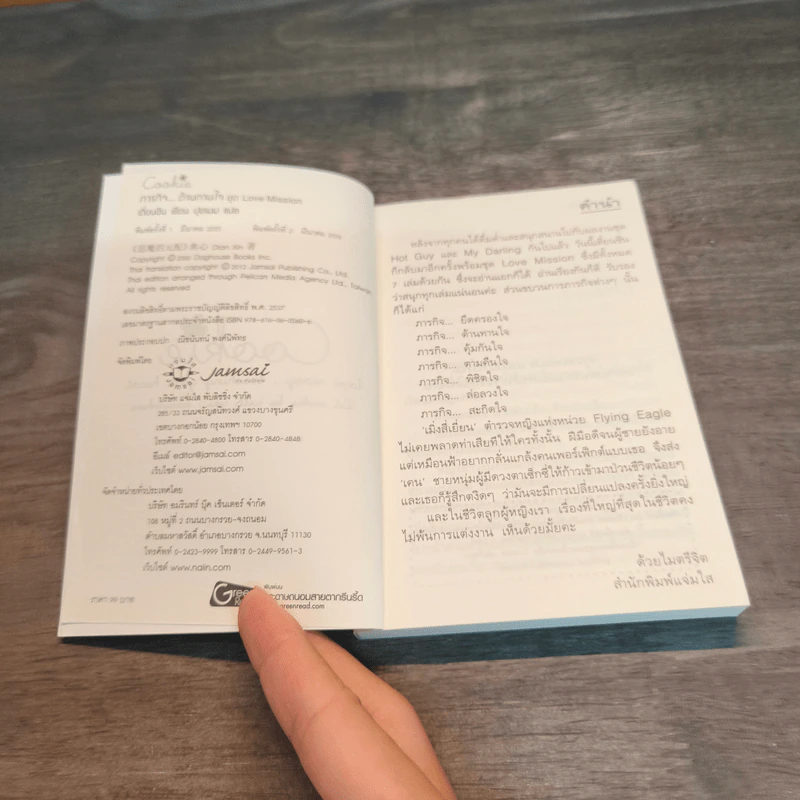 Cookie
ภารกิจ... ต้านทานใจ ชุด Love Mission
เตี่ยนซิน เขียน
แปล
พิมพ์ครั้งที่ 1 มีนาคม 2555 พิมพ์ครั้งที่ 2 มีนาคม 2555
心》 Dian Xin 著
Copyright © 2010 Doghouse Books Inc.
Thai translation copyright © 2012 Jamsai Publishing Co., Ltd.
Thai edition arranged through Pelican Media Agency Ltd., Taiwan
All rights reserved
สงวนลิขสิทธิ์ตามพระราชบัญญัติลิขสิทธิ์ พ.ศ. 2537
เลขมาตรฐานสากลประจำหนังสือ ISBN 978-616-06-0560-6
ภาพประกอบปก ณัชนันทน์ พงศ์นิพัทธ
จัดพิมพ์โดย
jamsai
บริษัท แจ่มใส พับลิชชิ่ง จำกัด
285/33 ถนนจรัญสนิทวงศ์ แขวงบางขุนศรี
เขตบางกอกน้อย กรุงเทพฯ 10700
โทรศัพท์ 0-2840-4800 โทรสาร 0-2840-4848
อีเมล์ editor@jamsai.com
เว็บไซต์ www.jamsai.com
จัดจำหน่ายทั่วประเทศโดย
บริษัท อมรินทร์ บุ๊ค เซ็นเตอร์ จำกัด
108 หมู่ที่ 2 ถนนบางกรวย-จงถนอม
ตำบลมหาสวัสดิ์ อำเภอบางกรวย จ.นนทบุรี 11130
โทรศัพท์ 0-2423-9999 โทรสาร 0-2449-9561-3
เว็บไซต์ www.naiin.com
พิมพ์บน
Green
กระดาษถนอมสายตากรีนรี้ด
greenread.com
ราคา 99 บาท
คำนำ
หลังจากทุกคนได้ดื่มด่ำและสนุกสนานไปกับผลงานชุด
Hot Guy และ My Darling กันไปแล้ว วันนี้เตี่ยนซิน
ก็กลับมาอีกครั้งพร้อมชุด Love Mission ซึ่งมีทั้งหมด
7 เล่มด้วยกัน ซึ่งจะอ่านแยกก็ได้ อ่านเรียงกันก็ดี รับรอง
ว่าสนุกทุกเล่มแน่นอนค่ะ ส่วนขบวนการภารกิจต่างๆ นั้น
ก็ได้แก่
ภารกิจ... ยึดครองใจ
ภารกิจ... ต้านทานใจ
ภารกิจ... คุ้มกันใจ
ภารกิจ... ตามคืนใจ
ภารกิจ... พิชิตใจ
ภารกิจ... ล่อลวงใจ
ภารกิจ... สะกิดใจ
'เมิ่งสี่เยี่ยน' ตำรวจหญิงแห่งหน่วย Flying Eagle
ไม่เคยพลาดท่าเสียทีให้ใครทั้งนั้น ฝีมือดีจนผู้ชายยังอาย
แต่เหมือนฟ้าอยากกลั่นแกล้งคนเพอร์เฟ็กต์แบบเธอ จึงส่ง
'เคน' ชายหนุ่มผู้มีดวงตาเซ็กซี่ให้ก้าวเข้ามาป่วนชีวิตน้อยๆ
และเธอก็รู้สึกตงิดๆ ว่ามันจะมีการเปลี่ยนแปลงครั้งยิ่งใหญ่
และในชีวิตลูกผู้หญิงเรา เรื่องที่ใหญ่ที่สุดในชีวิตคง
ไม่พ้นการแต่งงาน เห็นด้วยมั้ยคะ
ด้วยไมตรีจิต
สำนักพิมพ์แจ่มใส